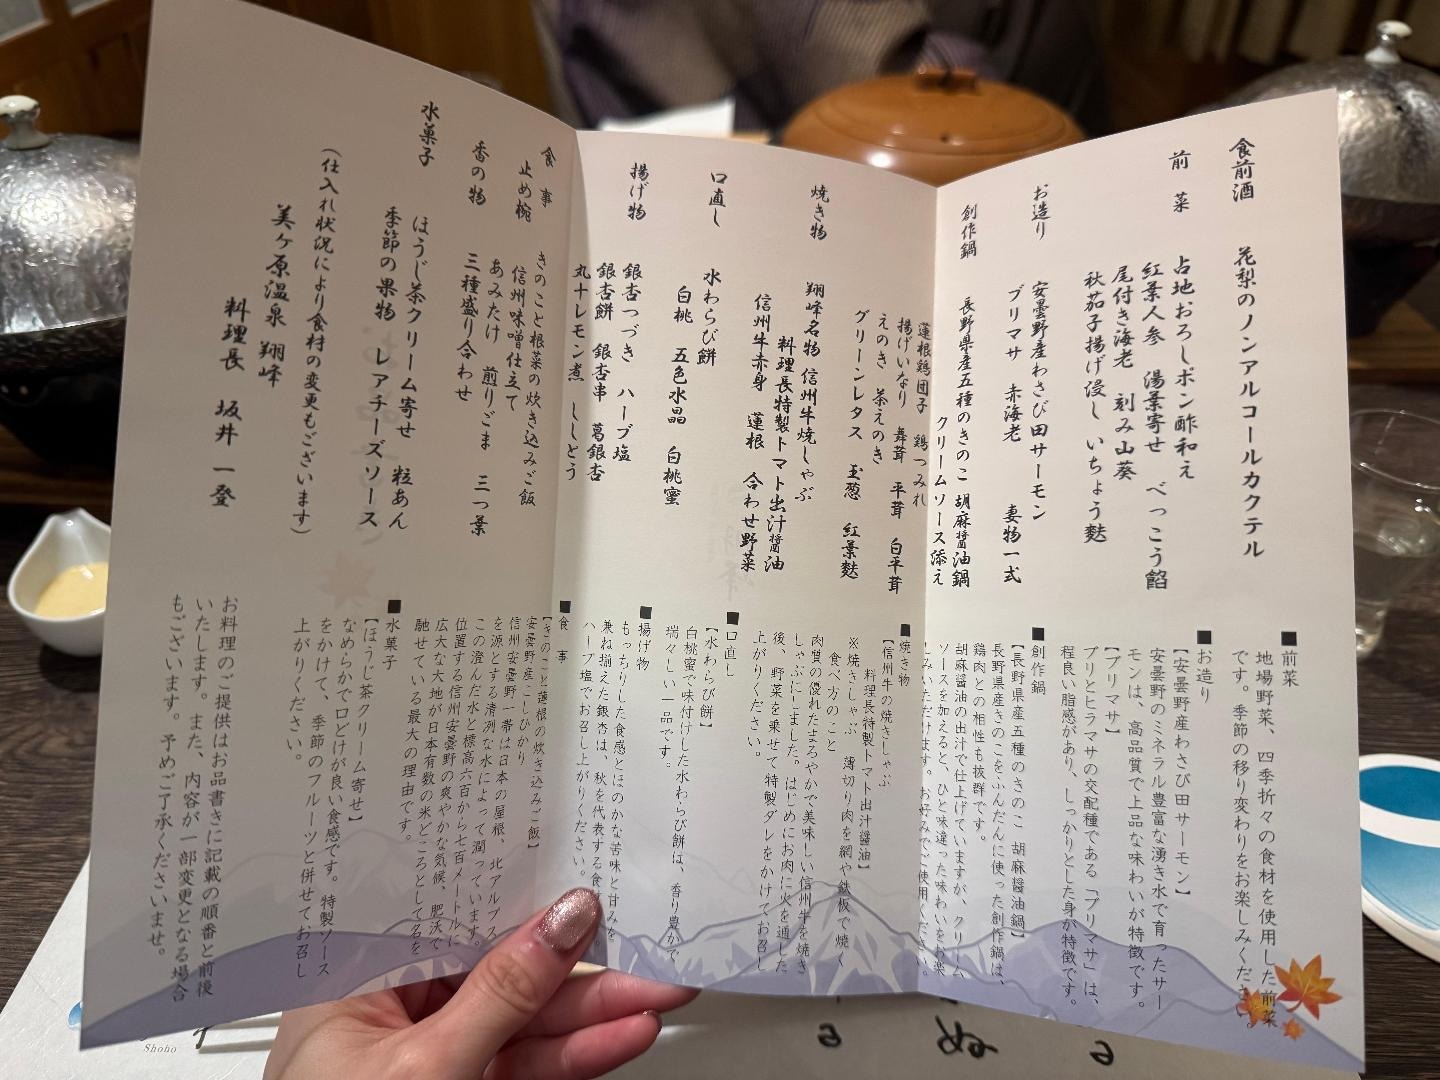 食前酒　花梨のノンアルコールカクテル
前菜　占地おろしポン酢和え
紅葉人参　湯葉寄せ　べっこう餡
尾付き海老　刻み山葵
秋茄子揚げ浸し　いちょう麩
お造り　安曇野産わさび田サーモン
ブリマサ　赤海老　妻物一式
創作鍋　長野県産五種のきのこ　胡麻醤油鍋
クリームソース添え
蓮根鶏団子　鶏つみれ
揚げいなり　舞茸　平茸　白平茸
えのき　茶えのき
グリーンレタス　玉葱　紅葉麩
焼き物　翔峰名物　信州牛焼しゃぶ
料理長特製トマト出汁醤油
信州牛赤身　蓮根　合わせ野菜
口直し　水わらび餅
白桃　五色水晶　白桃蜜
揚げ物　銀杏つづき　ハーブ塩
銀杏餅　銀杏串　葛銀杏
丸十レモン煮　ししとう
食事　きのこと根菜の炊き込みご飯
止め椀　信州味噌仕立て
あみたけ　煎りごま　三つ葉
香の物　三種盛り合わせ
水菓子　ほうじ茶クリーム寄せ　粒あん
季節の果物　レアチーズソース
（仕入れ状況により食材の変更もございます）
美ヶ原温泉　翔峰
料理長　坂井　一登
■前菜
地場野菜、四季折々の食材を使用した前菜
です。季節の移り変わりをお楽しみください。
■お造り
【安曇野産わさび田サーモン】
安曇野のミネラル豊富な湧き水で育ったサー
モンは、高品質で上品な味わいが特徴です。
【ブリマサ】
ブリとヒラマサの交配種である「ブリマサ」は、
程良い脂感があり、しっかりとした身が特徴です。
■創作鍋
【長野県産五種のきのこ　胡麻醤油鍋】
長野県産きのこをふんだんに使った創作鍋は、
鶏肉との相性も抜群です。
胡麻醤油の出汁で仕上げていますが、クリーム
ソースを加えると、ひと味違った味わいをお楽
しみいただけます。お好みでご使用ください。
■焼き物
【信州牛の焼きしゃぶ
料理長特製トマト出汁醤油】
※焼きしゃぶ　薄切り肉を網や鉄板で焼く
食べ方のこと
肉質の優れたまろやかで美味しい信州牛を焼き
しゃぶにしました。はじめにお肉に火を通した
後、野菜を乗せて特製ダレをかけてお召し
上がりください。
■口直し
【水わらび餅】
白桃蜜で味付けした水わらび餅は、香り豊かで
瑞々しい一品です。
■揚げ物
もっちりした食感とほのかな苦味と甘みを
兼ね揃えた銀杏は、秋を代表する食
ハーブ塩でお召し上がりください。
■食事
【きのこと蓮根の炊き込みご飯】
安曇野産こしひかり
信州安曇野一帯は日本の屋根、北アルプス
を源とする清冽な水によって潤っています。
この澄んだ水と標高六百から七百メートルに
位置する信州安曇野の爽やかな気候、肥沃で
広大な大地が日本有数の米どころとして名を
馳せている最大の理由です。
■水菓子
【ほうじ茶クリーム寄せ】
なめらかで口どけが良い食感です。特製ソース
をかけて、季節のフルーツと併せてお召し
上がりください。
お料理のご提供はお品書きに記載の順番と前後
いたします。また、内容が一部変更となる場合
もございます。予めご了承くださいませ。
Shoho
る
ぬ
る